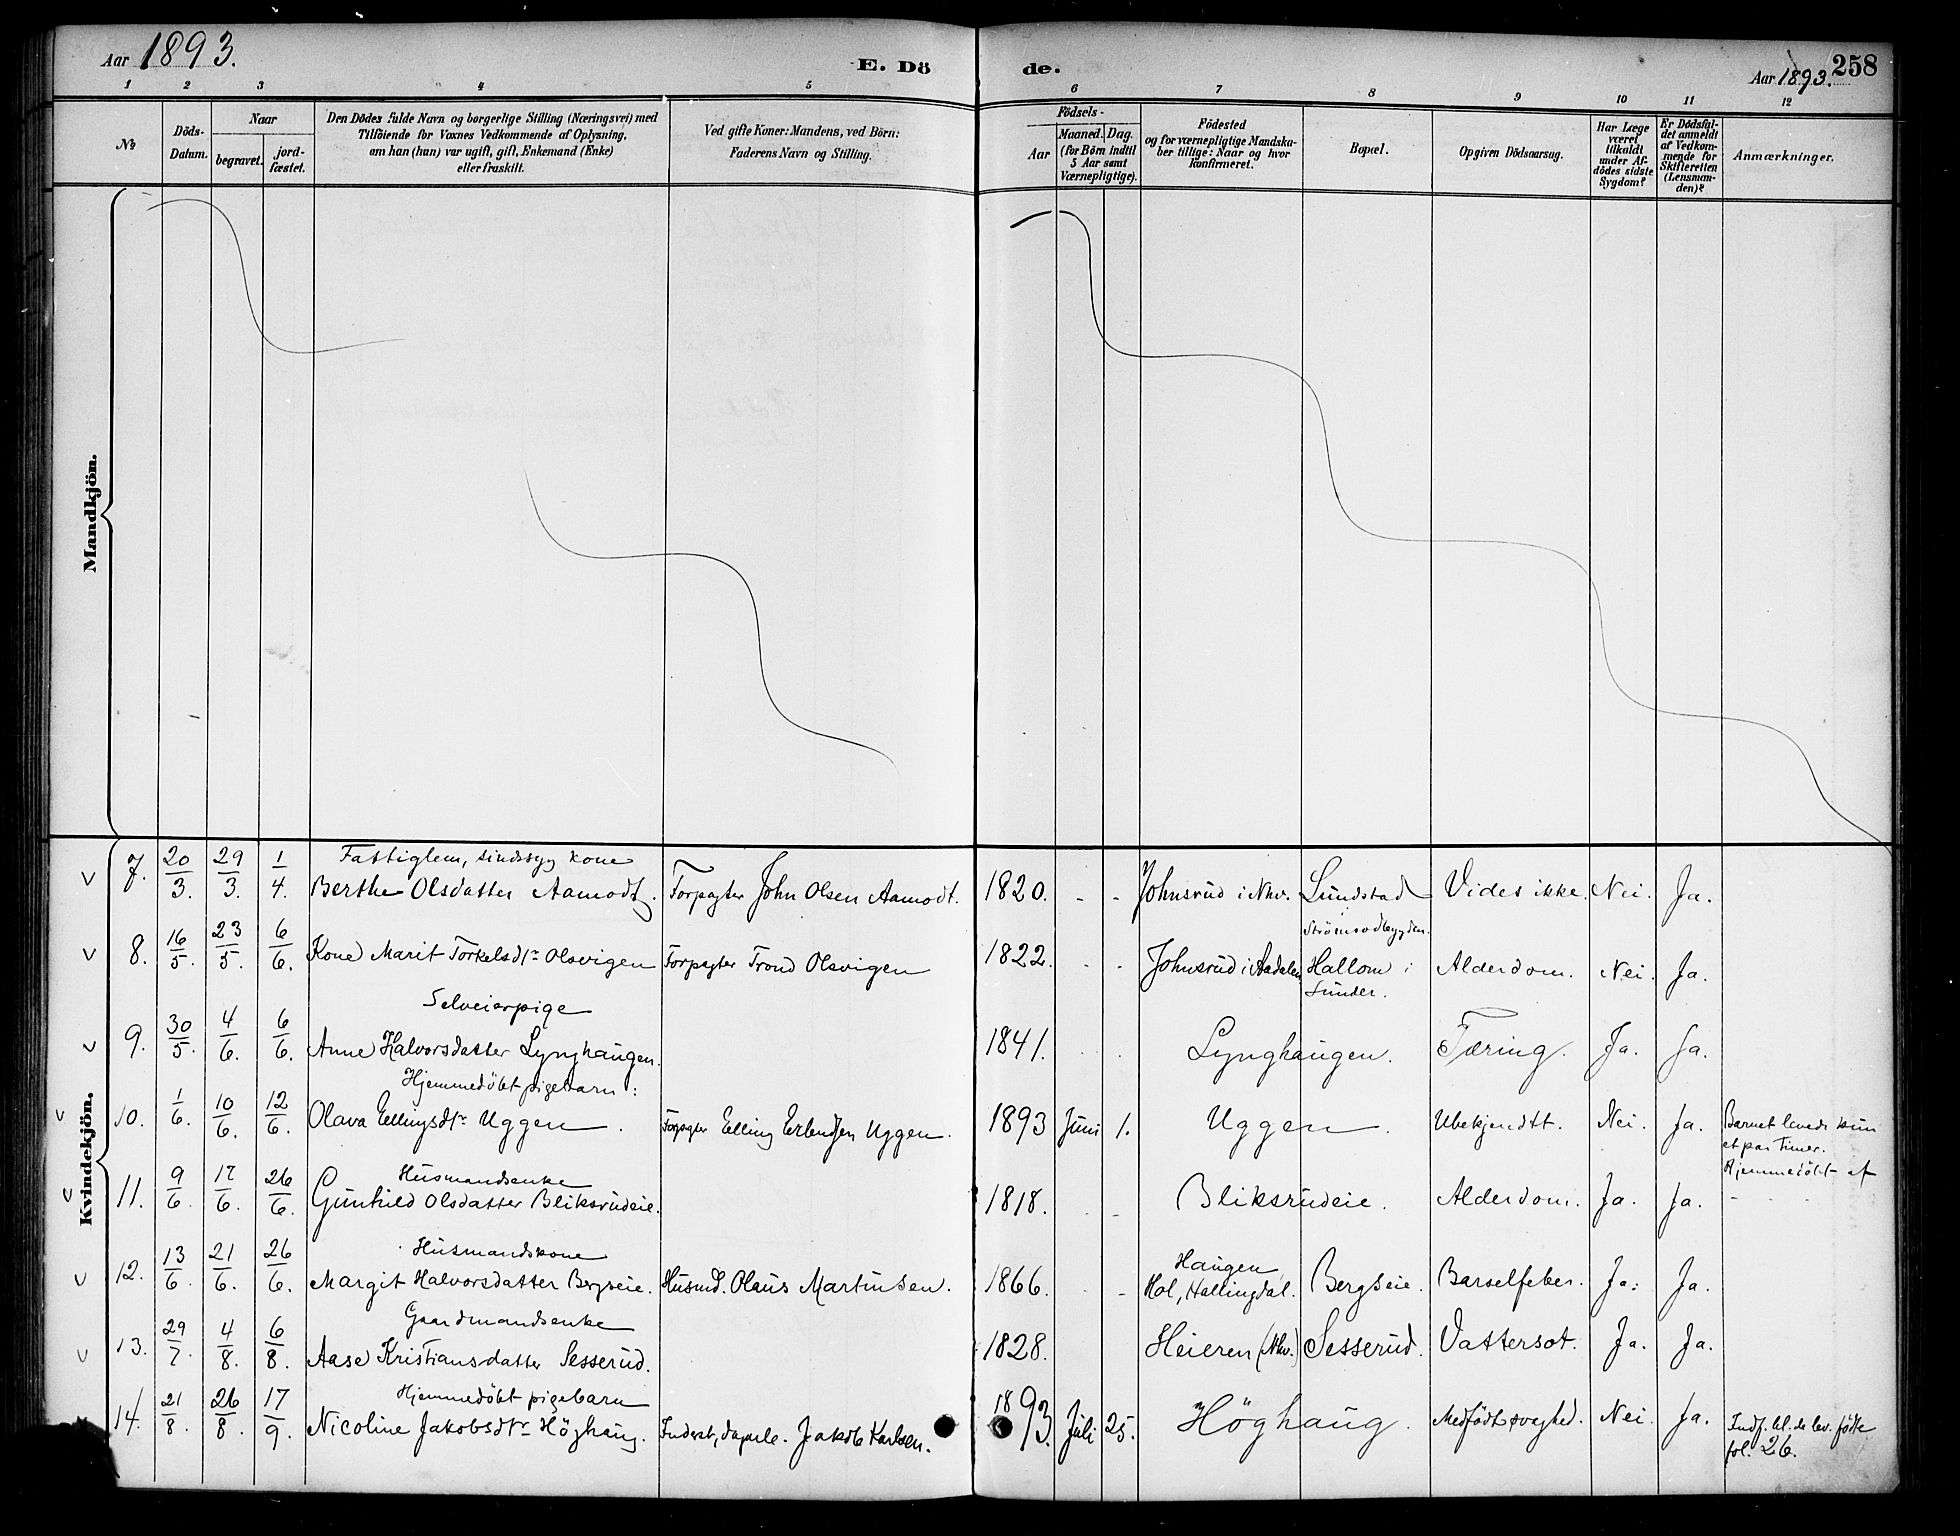 Aar 1893.
E. Dö
de.
Aar 1893.
258
1 2 3 4 5 6 7 8 9 10 11 12
№
Döds-
Datum.
Naar
begravet.
jord-
fæstet.
Den Dödes fulde Navn og borgerlige Stilling (Næringsvei) med
Tilföiende for Voxnes Vedkommende af Oplysning,
om han (hun) var ugift, gift, Enkemand (Enke)
eller fraskilt.
Ved gifte Koner: Mandens, ved Börn:
Faderens Navn og Stilling.
Födsels-
Aar
Maaned. Dag.
(for Börn indtil
5 Aar samt
Værnepligtige).
Födested
og for værnepligtige Mandska-
ber tillige: Naar og hvor
konfirmeret.
Bopæl.
Opgiven Dödsaarsag.
Har Læge
været
tilkaldt
under Af-
dödes sidste
Sygdom?
Er Dödsfal-
det anmeldt
af Vedkom-
mende for
Skifteretten
(Lensman-
den)?
Anmærkninger.
Mandkjön.
Kvindekjön.
Fattiglem, sindssyg kone
7. 20/3. 29/3. 1/4. Berthe Olsdatter Aamodt. Forpagter John Olsen Aamodt. 1820. - - Johnsrud i Nhv. Lundstad Vides ikke. Nei. Ja.
Strömsodbygden.
8. 16/5. 23/5. 6/6. Kone Marit Torkelsdtr Olsvigen Forpagter Trond Olsvigen 1822. - - Johnsrud i Aadalen Hallom i Alderdom. Nei. Ja.
Sunder.
Selveierpige
9. 30/5. 4/6. 6/6. Anne Halvorsdatter Lynghaugen. 1841. Lynghaugen. Tæring. Ja. Ja.
Hjemmedöbt pigebarn:
10. 1/6. 10/6. 12/6. Olava Ellingsdtr Uggen. Forpagter Elling Erlendsen Uggen. 1893 Juni 1. Uggen. Ubekjendtt. Nei. Ja. Barnet levede kun
et par Timer.
Hjemmedöbt af
Husmandsenke
11. 9/6. 17/6. 26/6. Gunhild Olsdatter Bliksrudeie. 1818. - Bliksrudeie. Alderdom. Ja. Ja. - - -
Husmandskone
12. 13/6. 21/6. 26/6. Margit Halvorsdatter Bergseie. Husmd. Olaus Martinsen. 1866. - Haugen
Hol, Hallingdal. Bergseie. Barselfeber. Ja. Ja.
Gaardmandsenke
13. 29/7. 4/8. 6/8. Aase Kristiansdatter Sesserud. 1828. Heieren (Nhv.) Sesserud. Vattersot. Ja. Ja.
Hjemmedöbt pigebarn
14. 21/8. 26/8. 17/9. Nicoline Jakobsdtr Höghaug. Inderst, Jakob Karlsen. 1893. Juli 25. Höghaug. Medfödt svaghed. Nei. Ja. Indf. bl. de lev. födte
fol. 26.